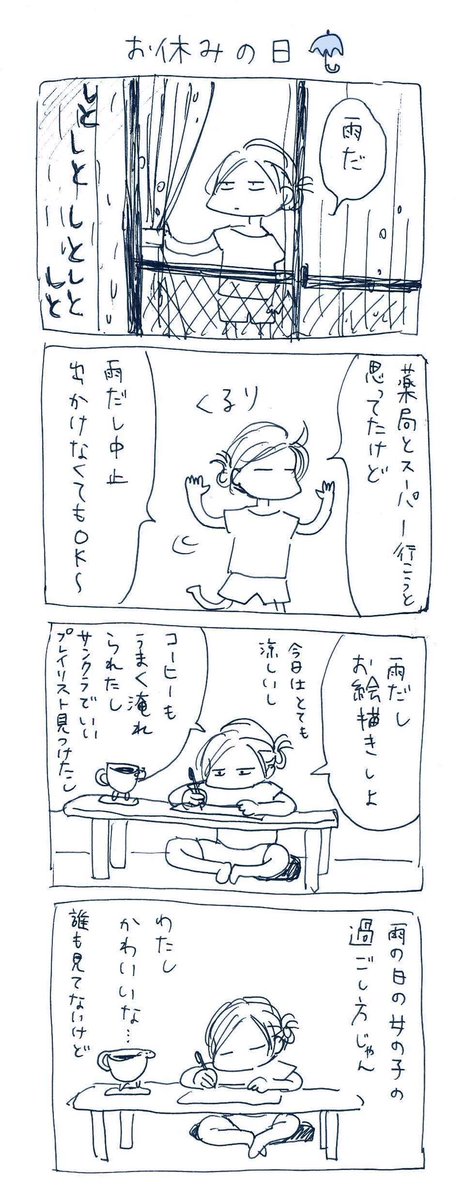 お休みの日
雨だ
しと
しと
しと
しと
しと
薬局とスーパー行こうと
思ってたけど
くるり
雨だし中止
出かけなくてもOK〜
雨だし
お絵描きしよ
今日はとても
涼しいし
コーヒーも
うまく淹れ
られたし
サンクラでいい
プレイリスト見つけたし
雨の日の女の子の
過ごし方じゃん
わたし
かわいいな…
誰も見てないけど